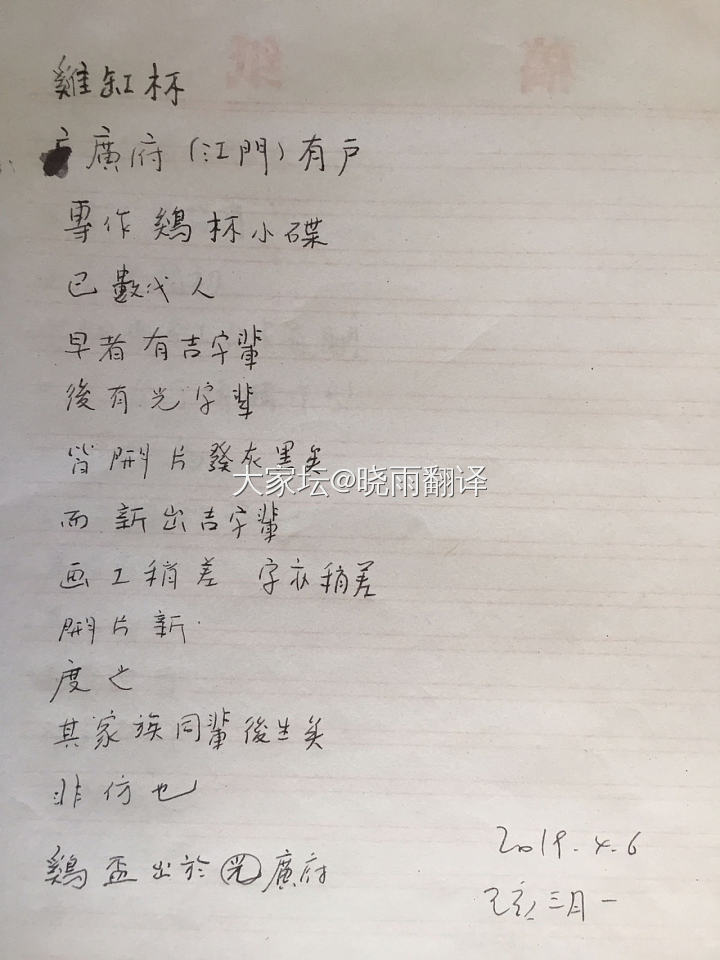 稿 紙
雞缸杯
廣府(江門)有戶
專作鷄杯小碟
已數代人
早者有吉字輩
後有光字輩
皆開片發灰黑矣
大家坛@晓雨翻译
而新出吉字輩
画工稍差 字亦稍差
開片新
度之
其家族同輩後生矣
非仿也
鷄盃出於廣府
2019.4.6
己亥三月一